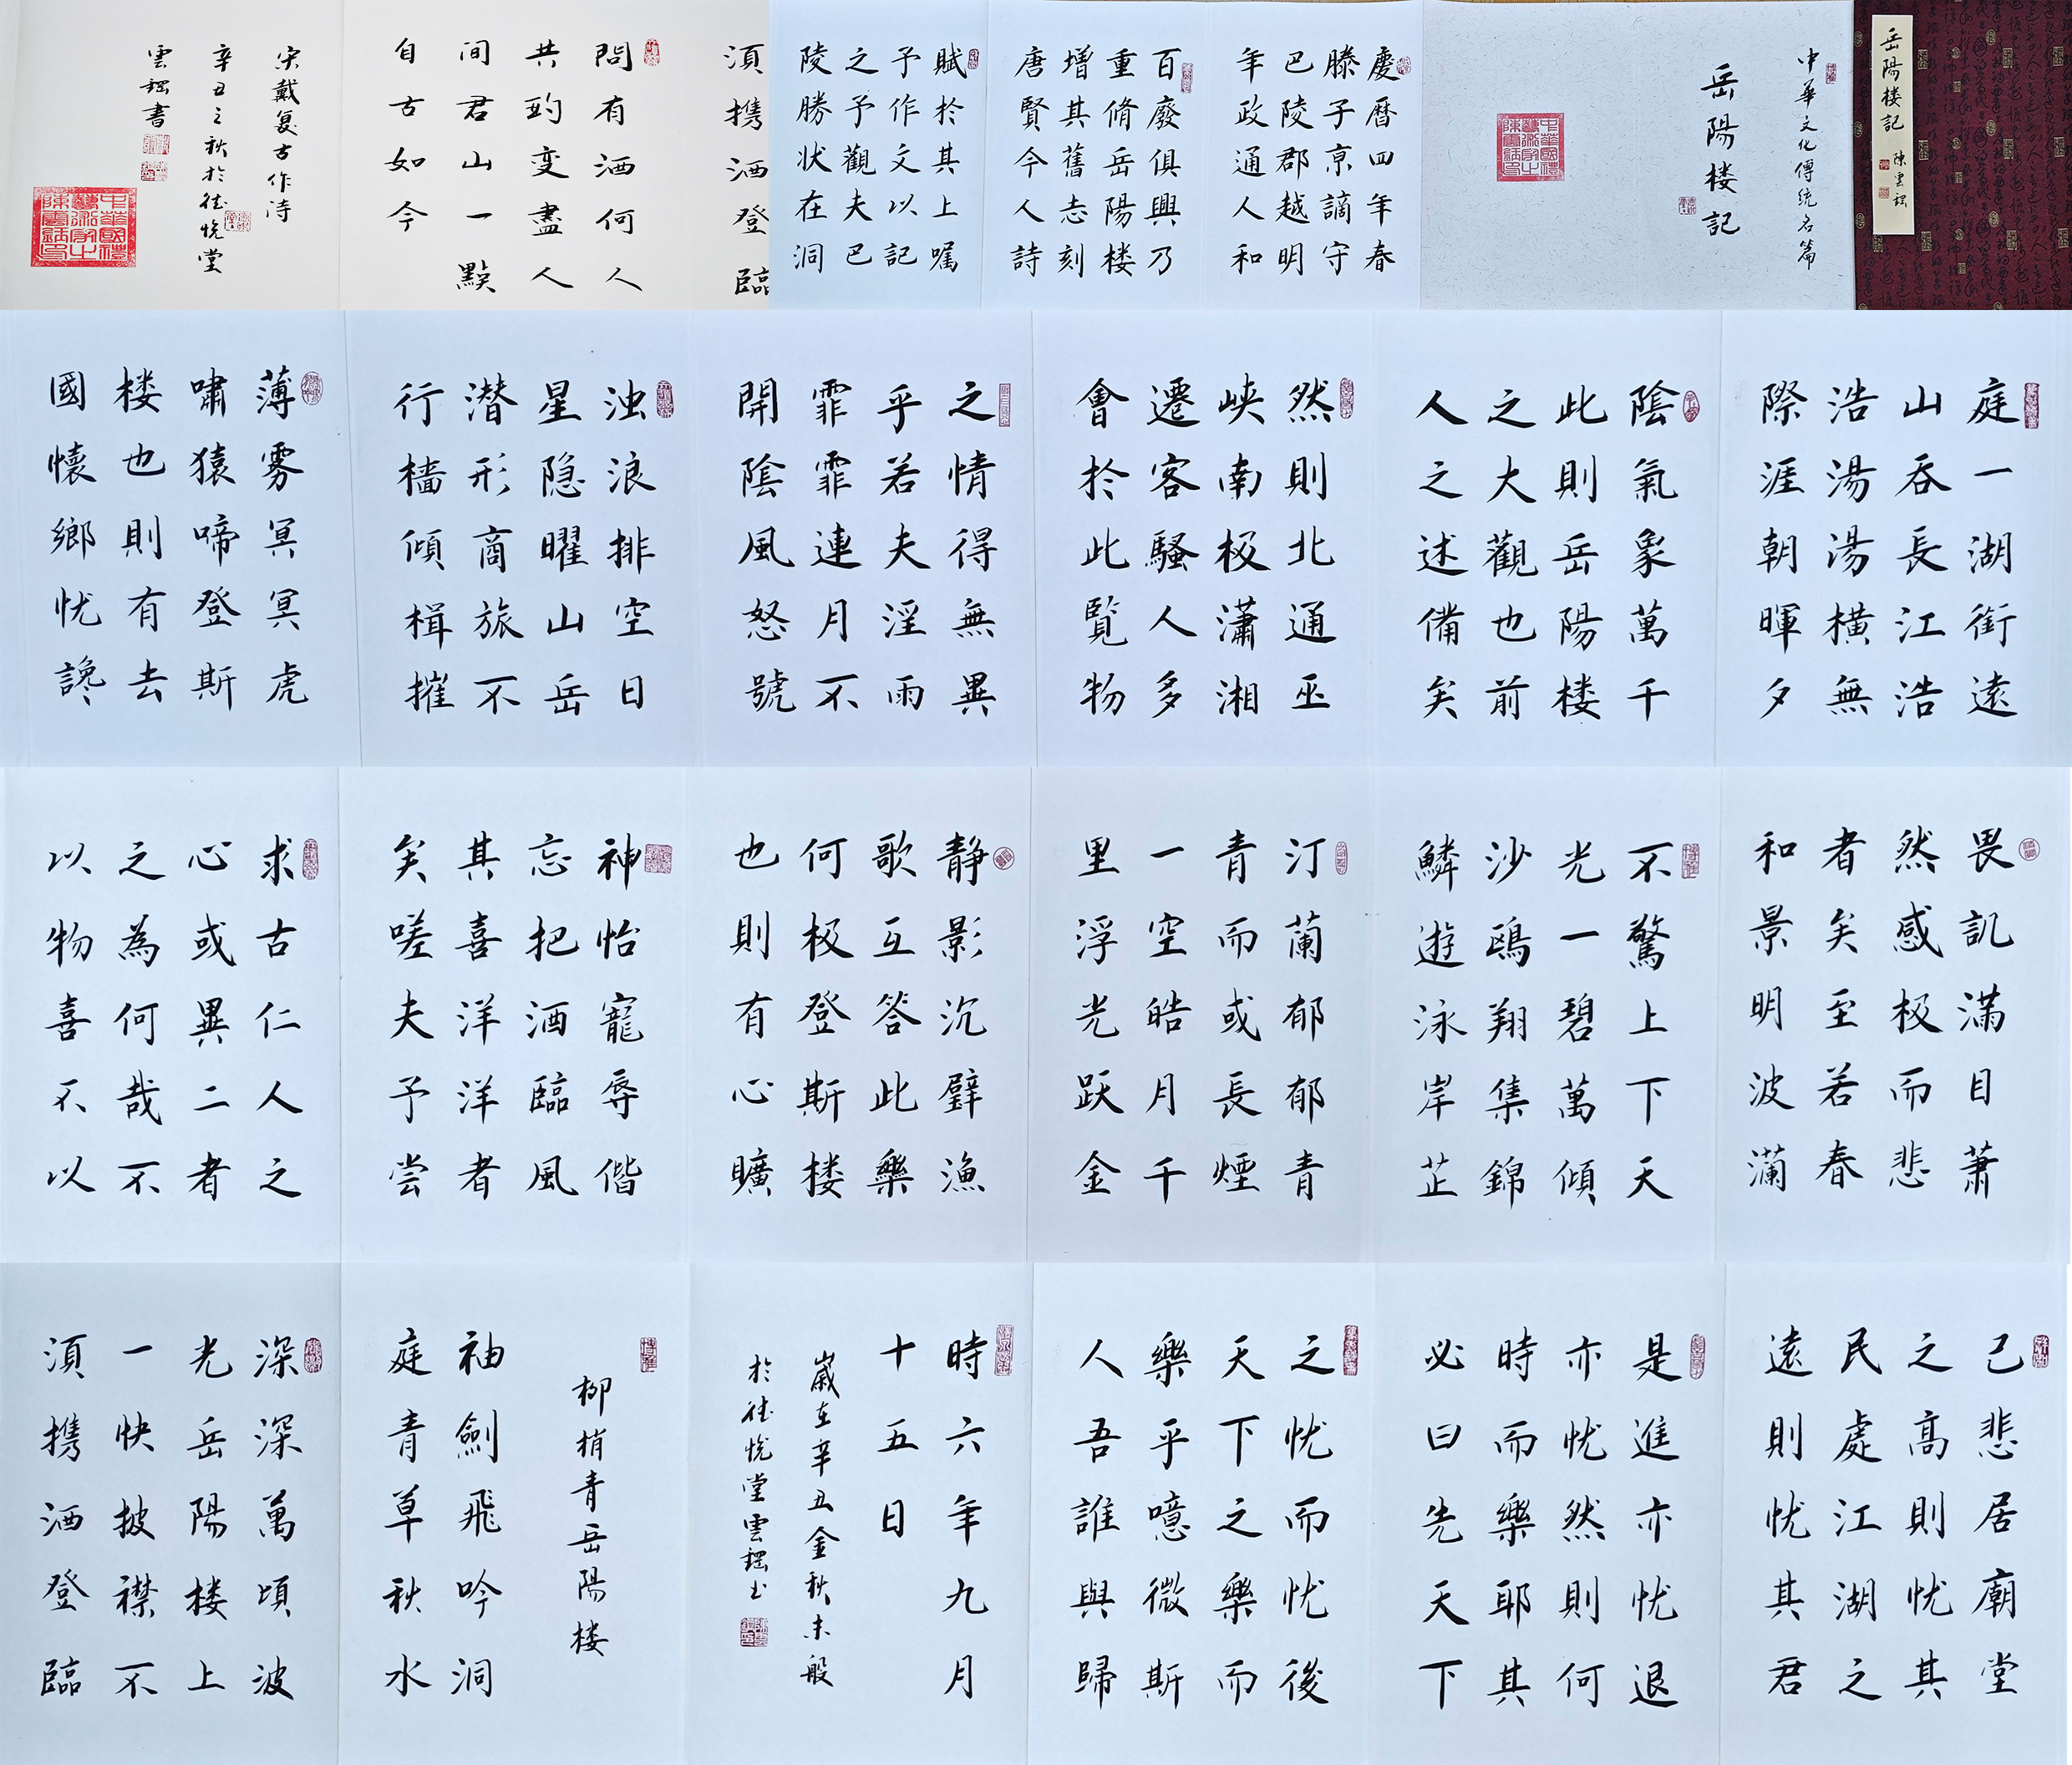 岳陽楼記
陳雲
中華文化傳統名篇
岳陽楼記
慶曆四年春
滕子京謫守
巴陵郡越明
年政通人和
百廢俱興乃
重脩岳陽楼
增其舊志刻
唐賢今人詩
賦於其上嘱
予作文以記
之予觀夫巴
陵勝状在洞
庭一湖銜遠
山吞長江浩
浩湯湯横無
際涯朝暉夕
陰氣象萬千
此則岳陽楼
之大觀也前
人之述備矣
然則北通巫
峡南极瀟湘
遷客騷人多
會於此覧物
之情得無異
乎若夫淫雨
霏霏連月不
開陰風怒號
浊浪排空日
星隐曜山岳
潜形商旅不
行檣傾楫摧
薄雾冥冥虎
嘯猿啼登斯
楼也則有去
國懷鄉忧讒
畏訊满目萧
然感极而悲
者矣至若春
和景明波瀾
不驚上下天
光一碧萬傾
沙鷗翔集錦
鱗遊泳岸芷
汀蘭郁郁青
青而或長煙
一空皓月千
里浮光跃金
静影沉璧漁
歌互答此樂
何极登斯楼
也則有心曠
神怡寵辱偕
忘把酒臨風
其喜洋洋者
矣嗟夫予尝
求古仁人之
心或異二者
之為何哉不
以物喜不以
己悲居廟堂
之高則忧其
民處江湖之
遠則忧其君
是進亦忧退
亦忧然則何
時而樂耶其
必曰先天下
之忧而忧後
天下之樂而
樂乎噫微斯
人吾誰與歸
時六年九月
十五日
歲在辛丑金秋
於德悦堂雲
柳梢青岳陽楼
袖劍飛吟洞
庭青草秋水
深深萬頃波
光岳陽楼上
一快披襟不
湏攜酒登臨
湏攜酒登臨
問有酒何人
共酌变盡人
間君山一點
自古如今
宋戴复古作诗
辛丑之秋於德悦堂
雲書